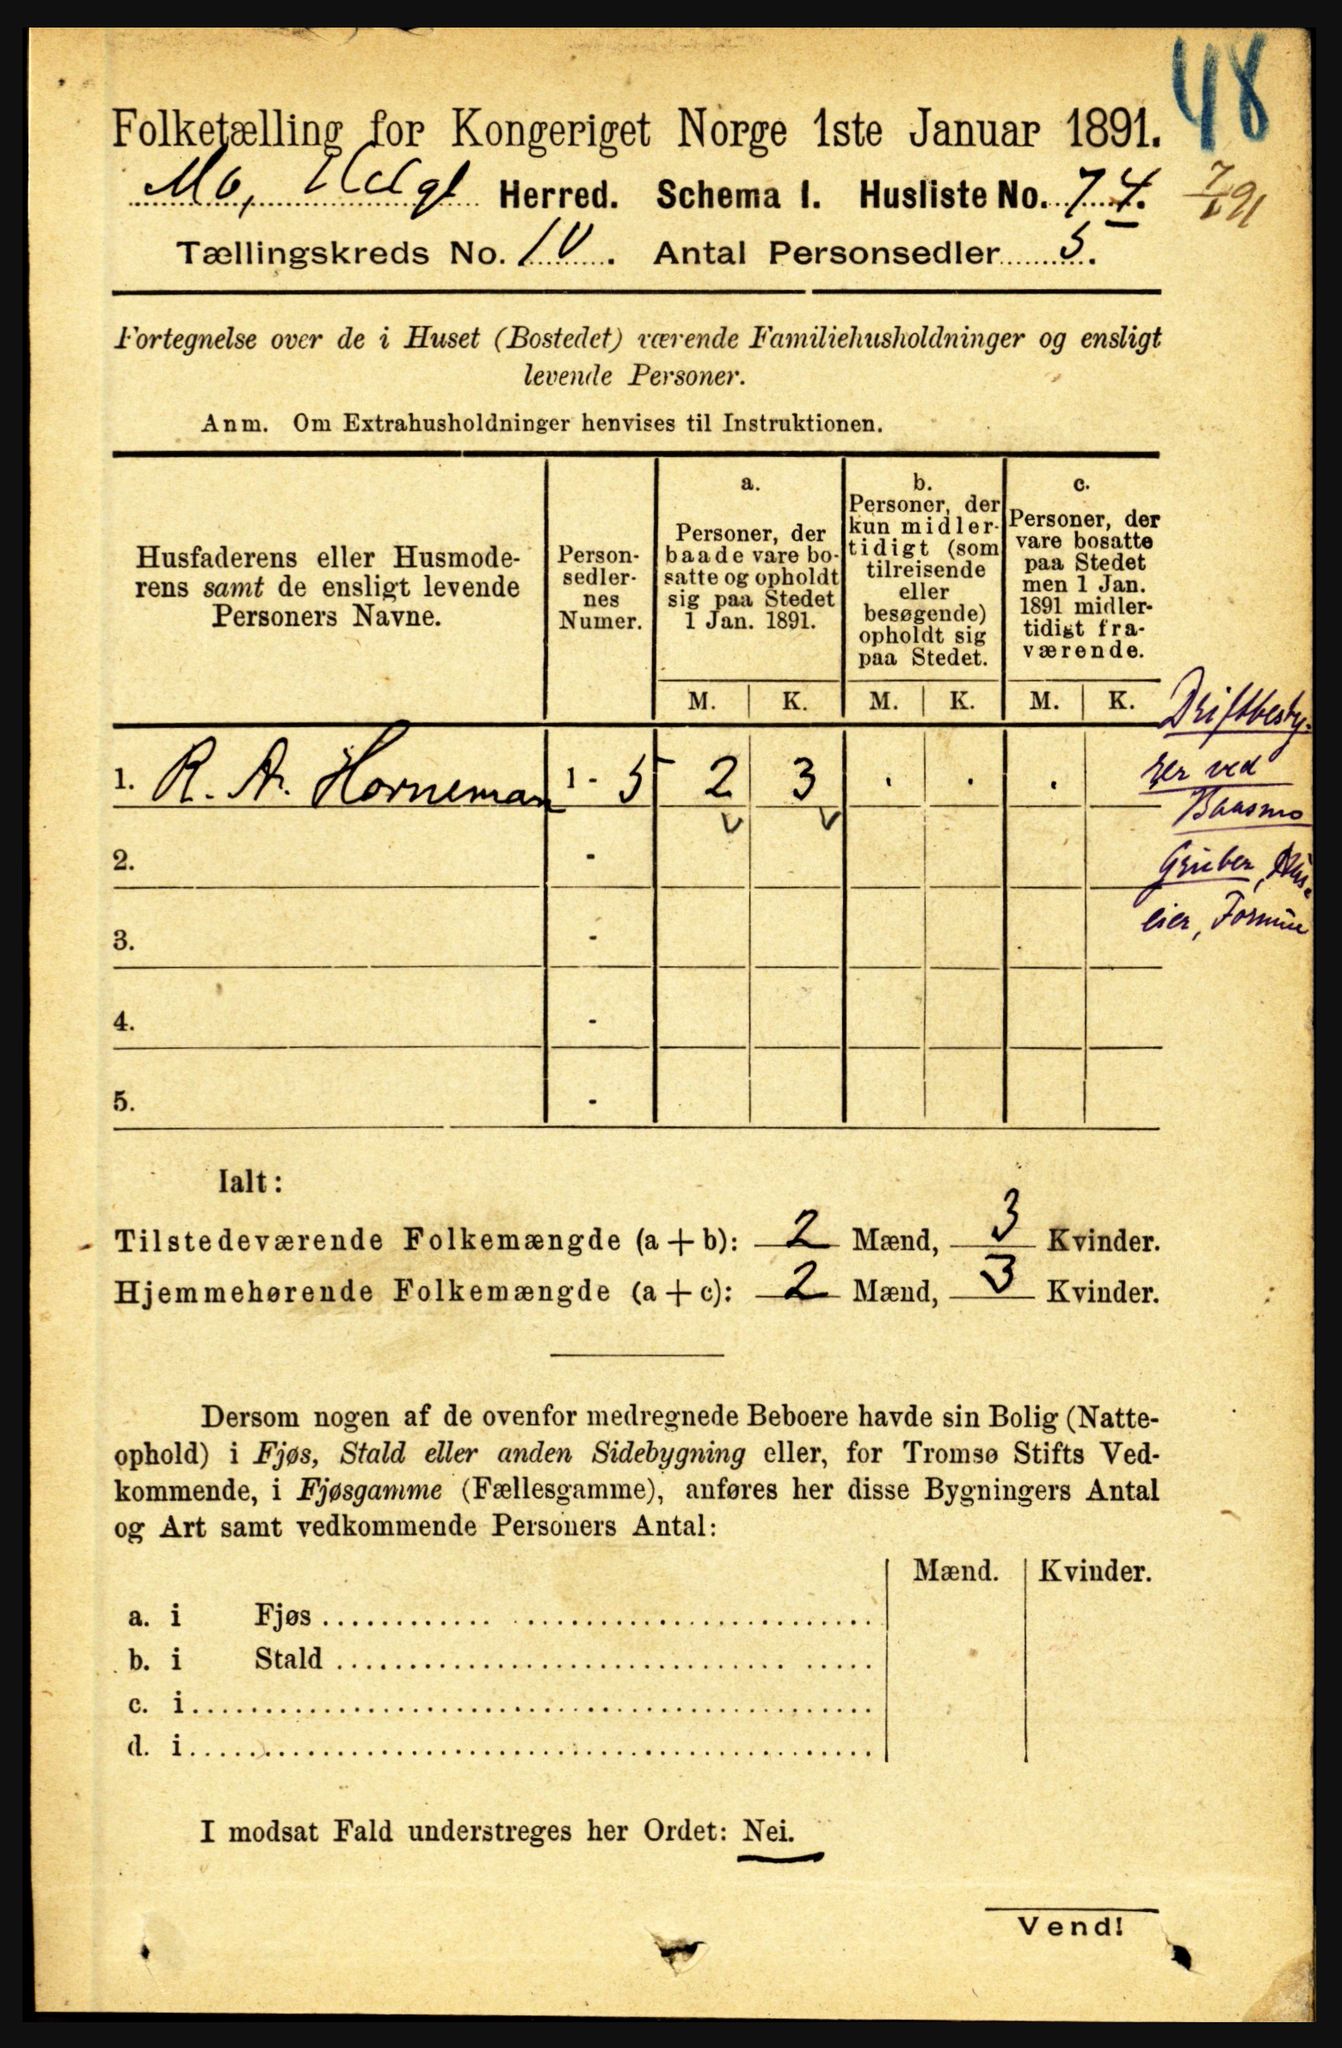 48
Folketælling for Kongeriget Norge 1ste Januar 1891.
Mo, Helgl Herred. Schema 1. Husliste No. 74.
Tællingskreds No. IV. Antal Personsedler 5.
Fortegnelse over de i Huset (Bostedet) værende Familiehusholdninger og ensligt
levende Personer.
Anm. Om Extrahusholdninger henvises til Instruktionen.
Husfaderens eller Husmode-
rens samt de ensligt levende
Personers Navne.
Person-
sedler-
nes
Numer.
a.
Personer, der
baade vare bo-
satte og opholdt
sig paa Stedet
1 Jan. 1891.
b.
Personer, der
kun midler-
tidigt (som
tilreisende
eller
besøgende)
opholdt sig
paa Stedet.
c.
Personer, der
vare bosatte
paa Stedet
men 1 Jan.
1891 midler-
tidigt fra-
værende.
M. K. M. K. M. K.
1. R. A. Horneman 1 - 5 2 3 . . .
2. -
3. -
4. -
5. -
Driftbesty-
rer ved
Baasmo
Gruber, Hus-
eier, Formue
Ialt:
Tilstedeværende Folkemængde (a + b): 2 Mænd, 3 Kvinder.
Hjemmehørende Folkemængde (a + c): 2 Mænd, 3 Kvinder.
Dersom nogen af de ovenfor medregnede Beboere havde sin Bolig (Natte-
ophold) i Fjøs, Stald eller anden Sidebygning eller, for Tromsø Stifts Ved-
kommende, i Fjøsgamme (Fællesgamme), anføres her disse Bygningers Antal
og Art samt vedkommende Personers Antal:
Mænd. Kvinder.
a. i Fjøs
b. i Stald
c. i
d. i
I modsat Fald understreges her Ordet: Nei.
Vend!